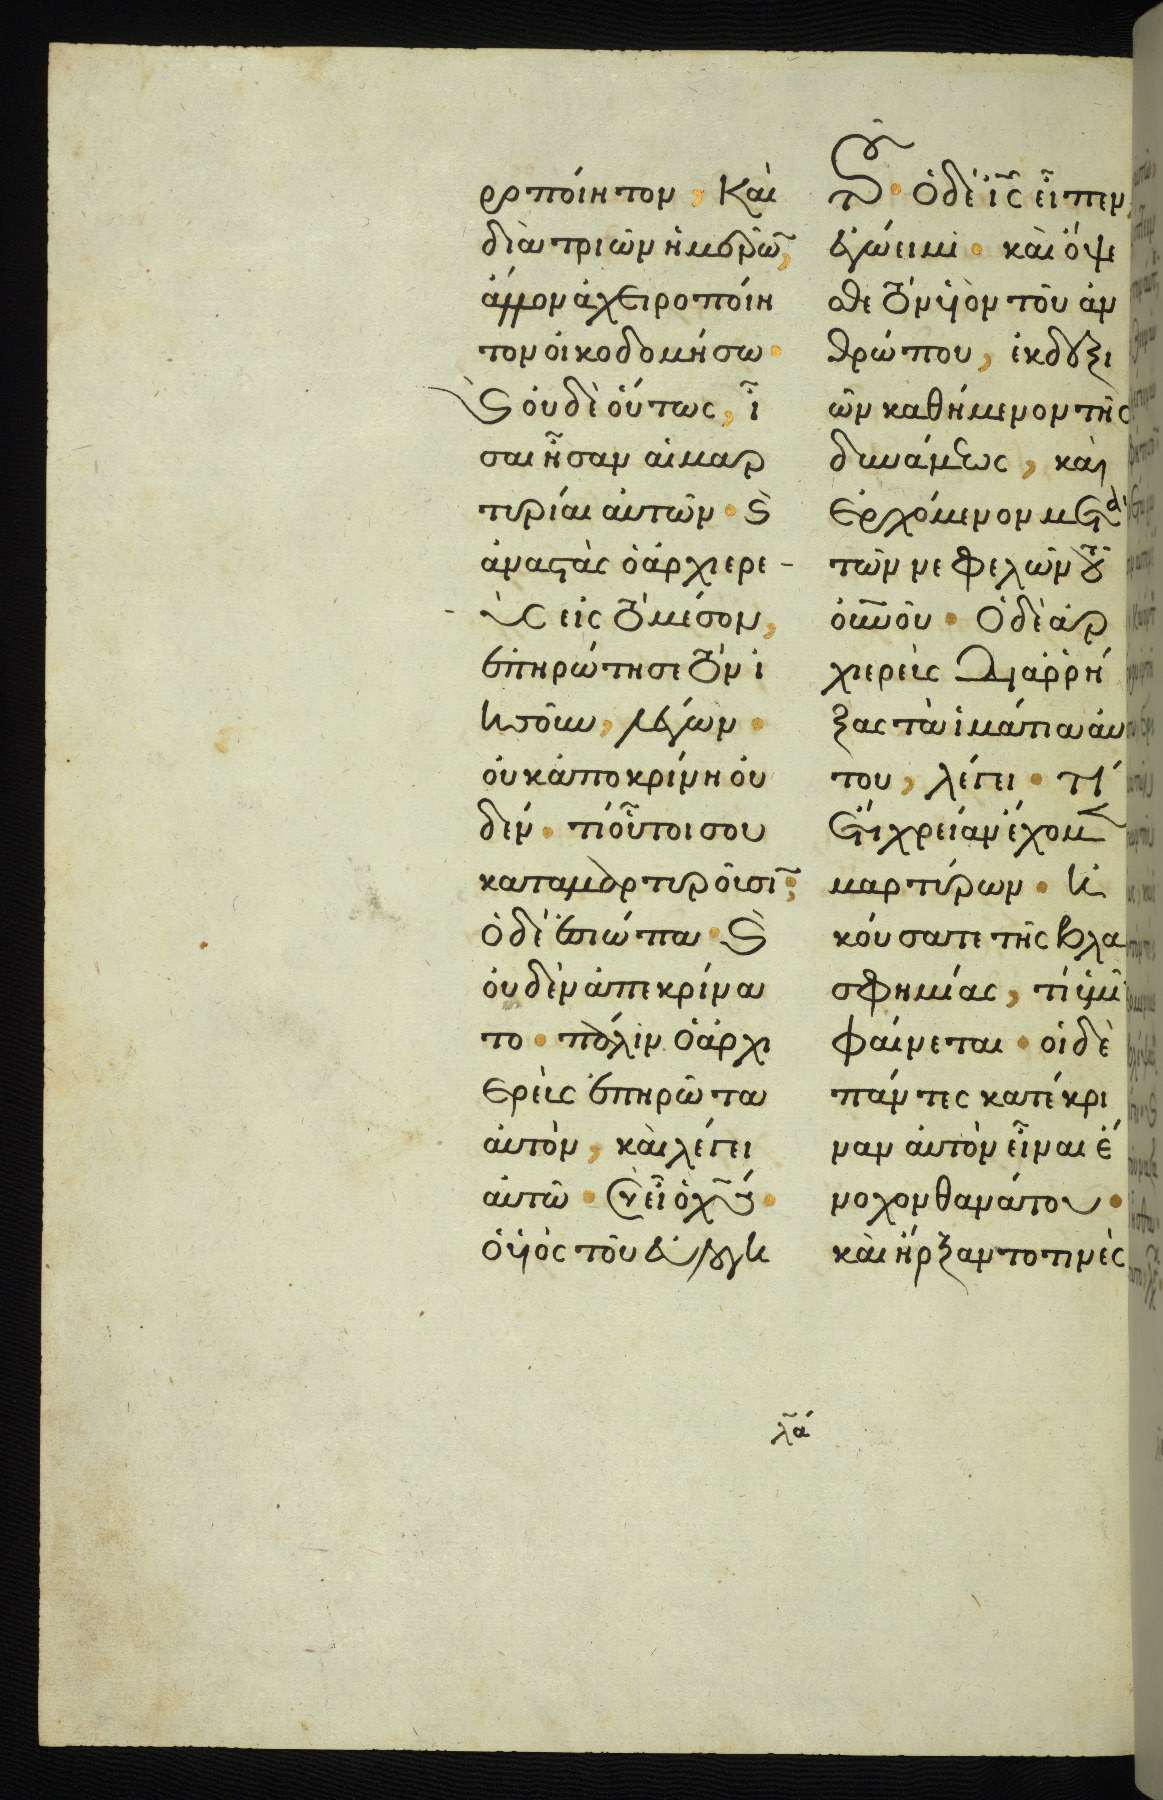 ροποίητον, Και
διὰ τριῶν ἡμερῶ̃,
ἄλλον ἀχειροποίη
τον οἰκοδομήσω·
Ϛ οὐδὲ οὕτως, ἴ
σαι ἦσαν αἱ μαρ
τυρίαι αὐτῶν· Ϛ̀
ἀναστὰς ὁ ἀρχιερε
ὺς εἰς τὸ μέσον,
ἐπηρώτησε τὸν ἰ
ησοῦν, λέγων·
οὐκ ἀποκρίνη οὐ
δέν· τί οὗτοι σου
καταμαρτυροῦσῖ;
Ὁ δὲ ἐσιώπα· Ϛ̀
οὐδὲν ἀπεκρίνα
το· πάλιν ὁ ἀρχι
ερεὺς ἐπηρώτα
αὐτὸν, καὶ λέγει
αὐτῶ· σὺ εἶ ὁ χ̃ς·
ὁ υἱὸς τοῦ εὐλογη
τοῦ· Ὁ δὲ ἰ̃ς εἶπεν,
ἐγώ εἰμι· καὶ ὄψε
σθε τὸν υἱὸν τοῦ ἀν
θρώπου, ἐκ δεξι
ῶν καθήμενον τῆς
δυνάμεως, καὶ
ἐρχόμενον μετὰ
τῶν νεφελῶν τοῦ
ο̃υ̃νοῦ· Ὁ δὲ ἀρ
χιερεὺς διαῤῥή
ξας τὰ ἱμάτια αὑ
του, λέγει· τί
ἔτι χρείαν ἔχομεν
μαρτύρων· ἠ
κούσατε τῆς βλα
σφημίας, τί ὑμῖ
φαίνεται· οἱ δὲ
πάντες κατέκρι
ναν αὐτὸν εἶναι ἔ
νοχον θανάτου·
καὶ ἤρξαντο τινὲς
λ̃α